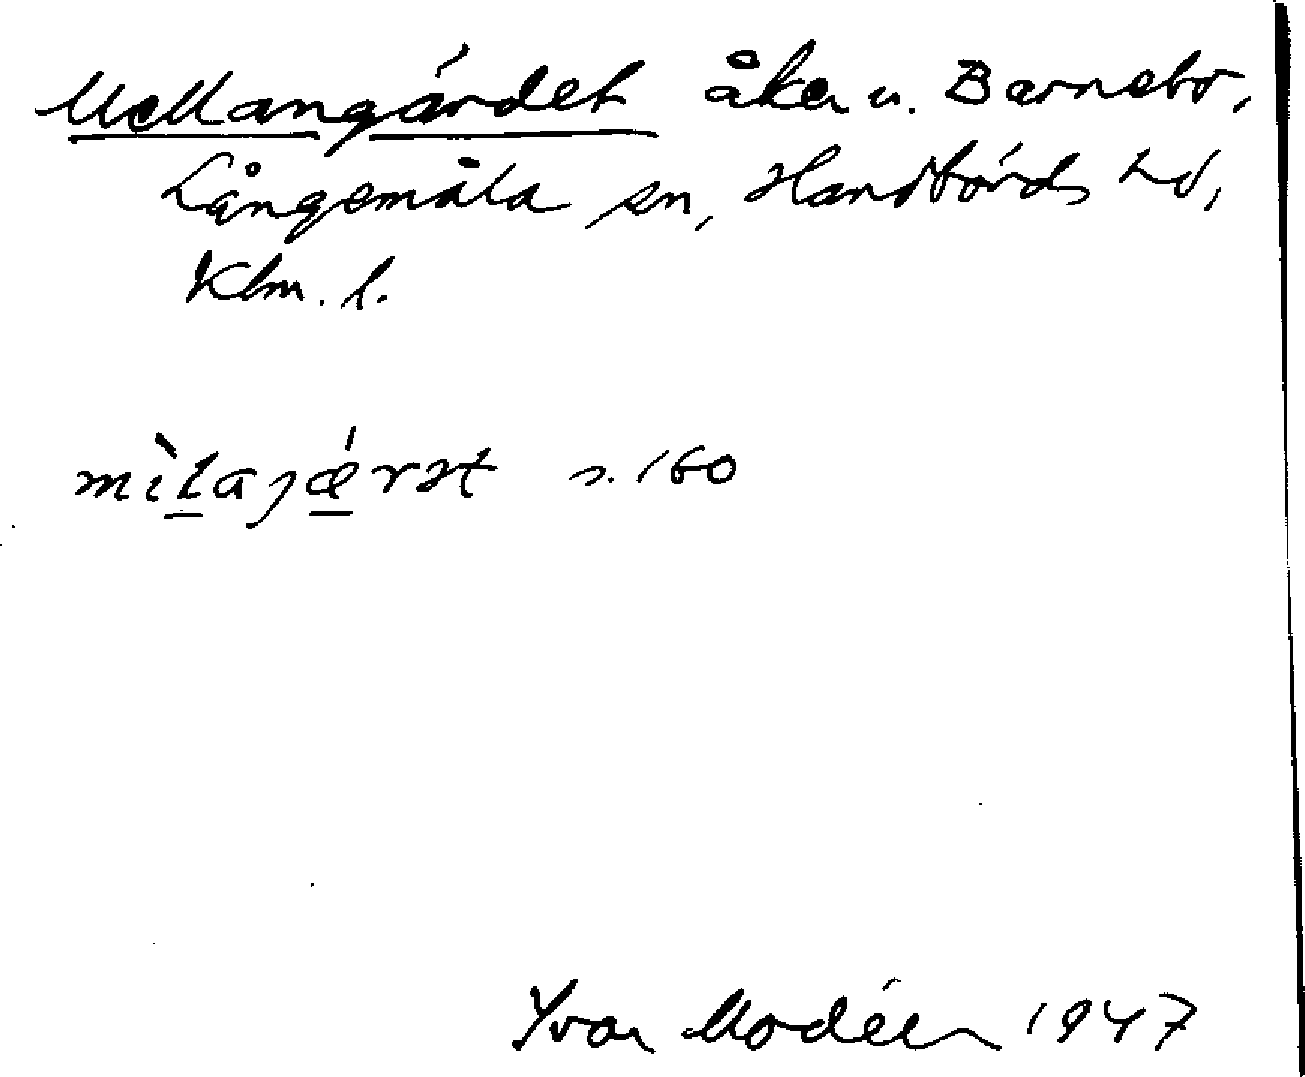 Mellangärdet åker u. Barnebo,
Långemåla sn, Handbörds hd,
Klm. l.
mìlajǽrət s. 160
Yvar Modéer 1947